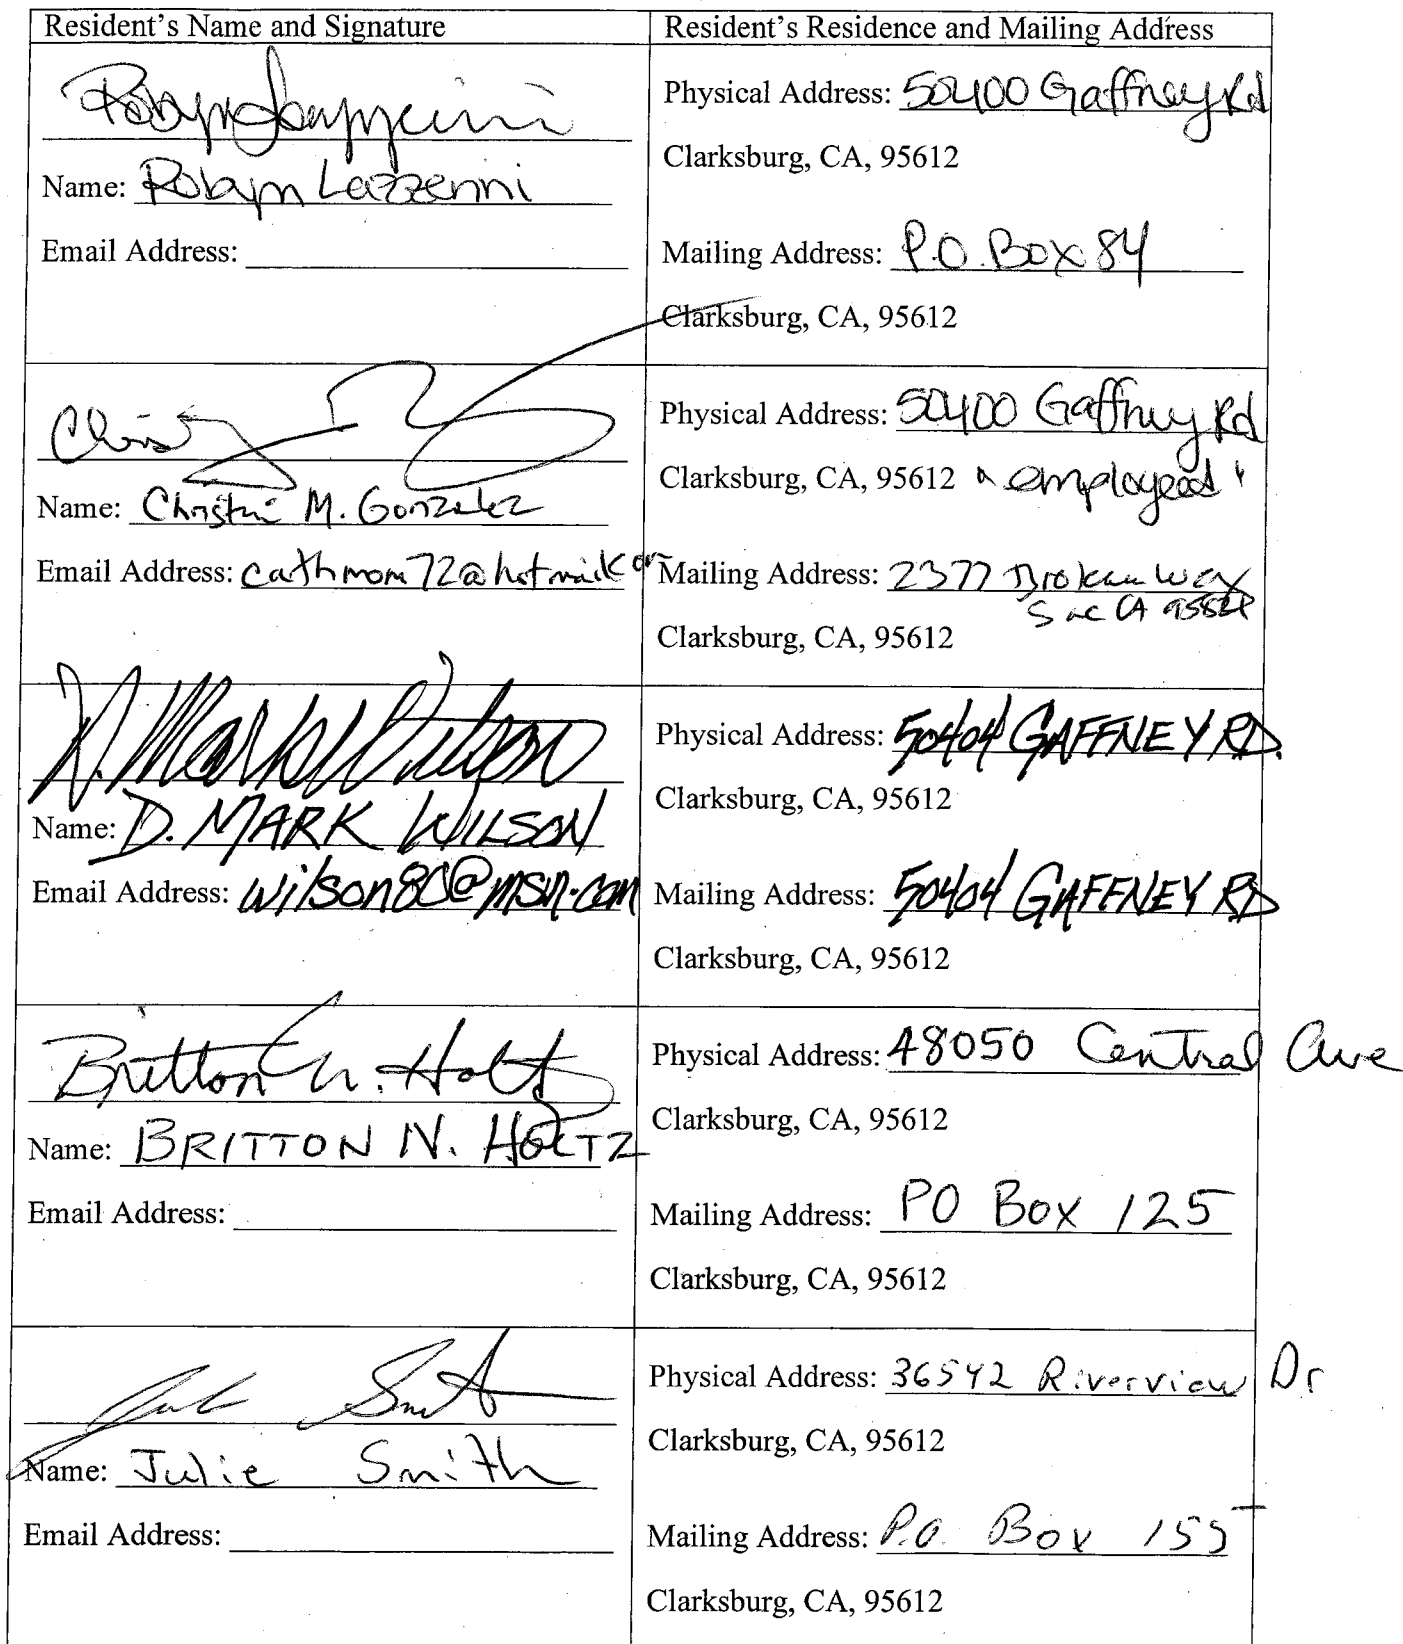 Resident's Name and Signature
Resident's Residence and Mailing Address
Name: Robyn Lazzerini
Email Address:
Physical Address: 50400 Gaffney Rd
Clarksburg, CA, 95612
Mailing Address: P.O. Box 84
Clarksburg, CA, 95612
Name: M. Gonzalez
Email Address: cathmom72@hotmail
Physical Address: 50400 Gaffney Rd
Clarksburg, CA, 95612 "employeed"
Mailing Address: 2377 Way
Sac CA
Clarksburg, CA, 95612
D. Mark Wilson
Name: D. MARK WILSON
Email Address: @msn.com
Physical Address: 50404 GAFFNEY RD.
Clarksburg, CA, 95612
Mailing Address: 50404 GAFFNEY RD
Clarksburg, CA, 95612
Britton N. Holtz
Name: BRITTON N. HOLTZ
Email Address:
Physical Address: 48050 Central Ave
Clarksburg, CA, 95612
Mailing Address: PO Box 125
Clarksburg, CA, 95612
Name: Julie Smith
Email Address:
Physical Address: 36542 Riverview Dr
Clarksburg, CA, 95612
Mailing Address: P.O. Box 155
Clarksburg, CA, 95612